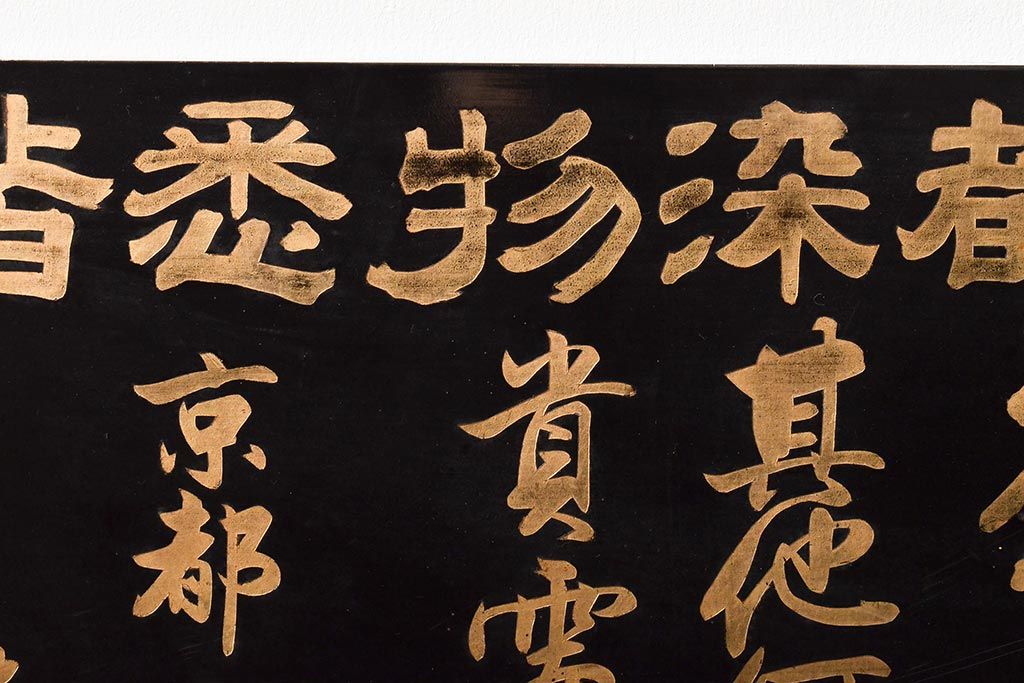 都染物悉皆
其他何
貴需
京都